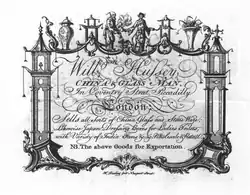 Willm Hussey
CHINA & GLASS MAN,
In Coventry Street, Piccadilly
London:
Sells all sorts of China, Glass and Stone Ware,
Likewise Japan Dressing Boxes for Ladies Toilets,
with Variety of India
NB. The above Goods for Exportation.